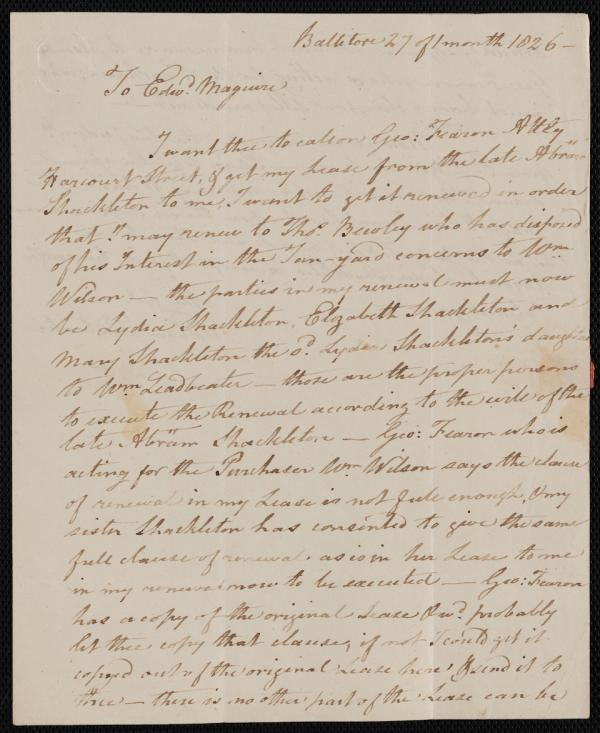 Ballitore 27 of 1 month 1826 —
To Edwd. Maguire
I want thee to call on Geo: Fearon Atty
Harcourt Street, & get my Lease from the late Abram
Shackleton to me, I want to get it renewed in order
that I may renew to Thos. Bewley who has disposed
of his Interest in the Tan-yard concerns to Wm
Wilson — the parties in my renewal must now
be Lydia Shackleton, Elizabeth Shackleton and
Mary Shackleton the sd. Lydia Shackleton's daughters
to Wm Leadbeater — those are the proper persons
to execute the Renewal according to the will of the
late Abram Shackleton — Geo: Fearon who is
acting for the Purchaser Wm Wilson says the clause
of renewal in my Lease is not full enough, & my
sister Shackleton has consented to give the same
full clause of renewal, as is in her Lease to me
in my renewal now to be executed — Geo: Fearon
has a copy of the original Lease & wd. probably
let thee copy that clause, if not I could get it
copyed out of the original Lease here & send it to
thee — there is no other part of the Lease can be